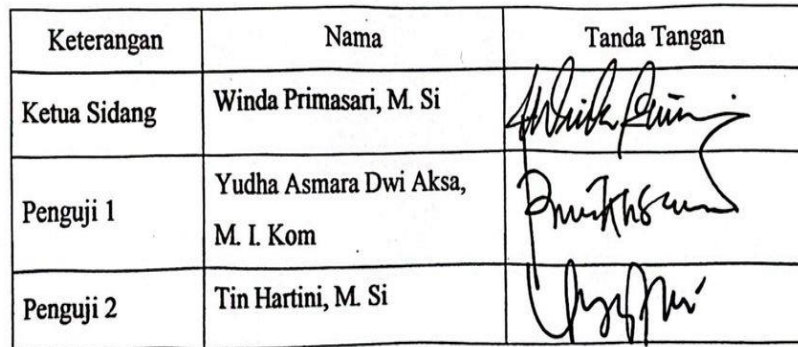 Keterangan Nama Tanda Tangan
Ketua Sidang Winda Primasari, M. Si
Penguji 1 Yudha Asmara Dwi Aksa,
M. I. Kom
Penguji 2 Tin Hartini, M. Si